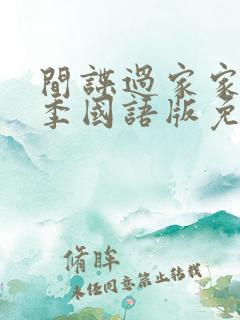 間諜過家家
季國語版免
脩眸
未任同意禁止轉載